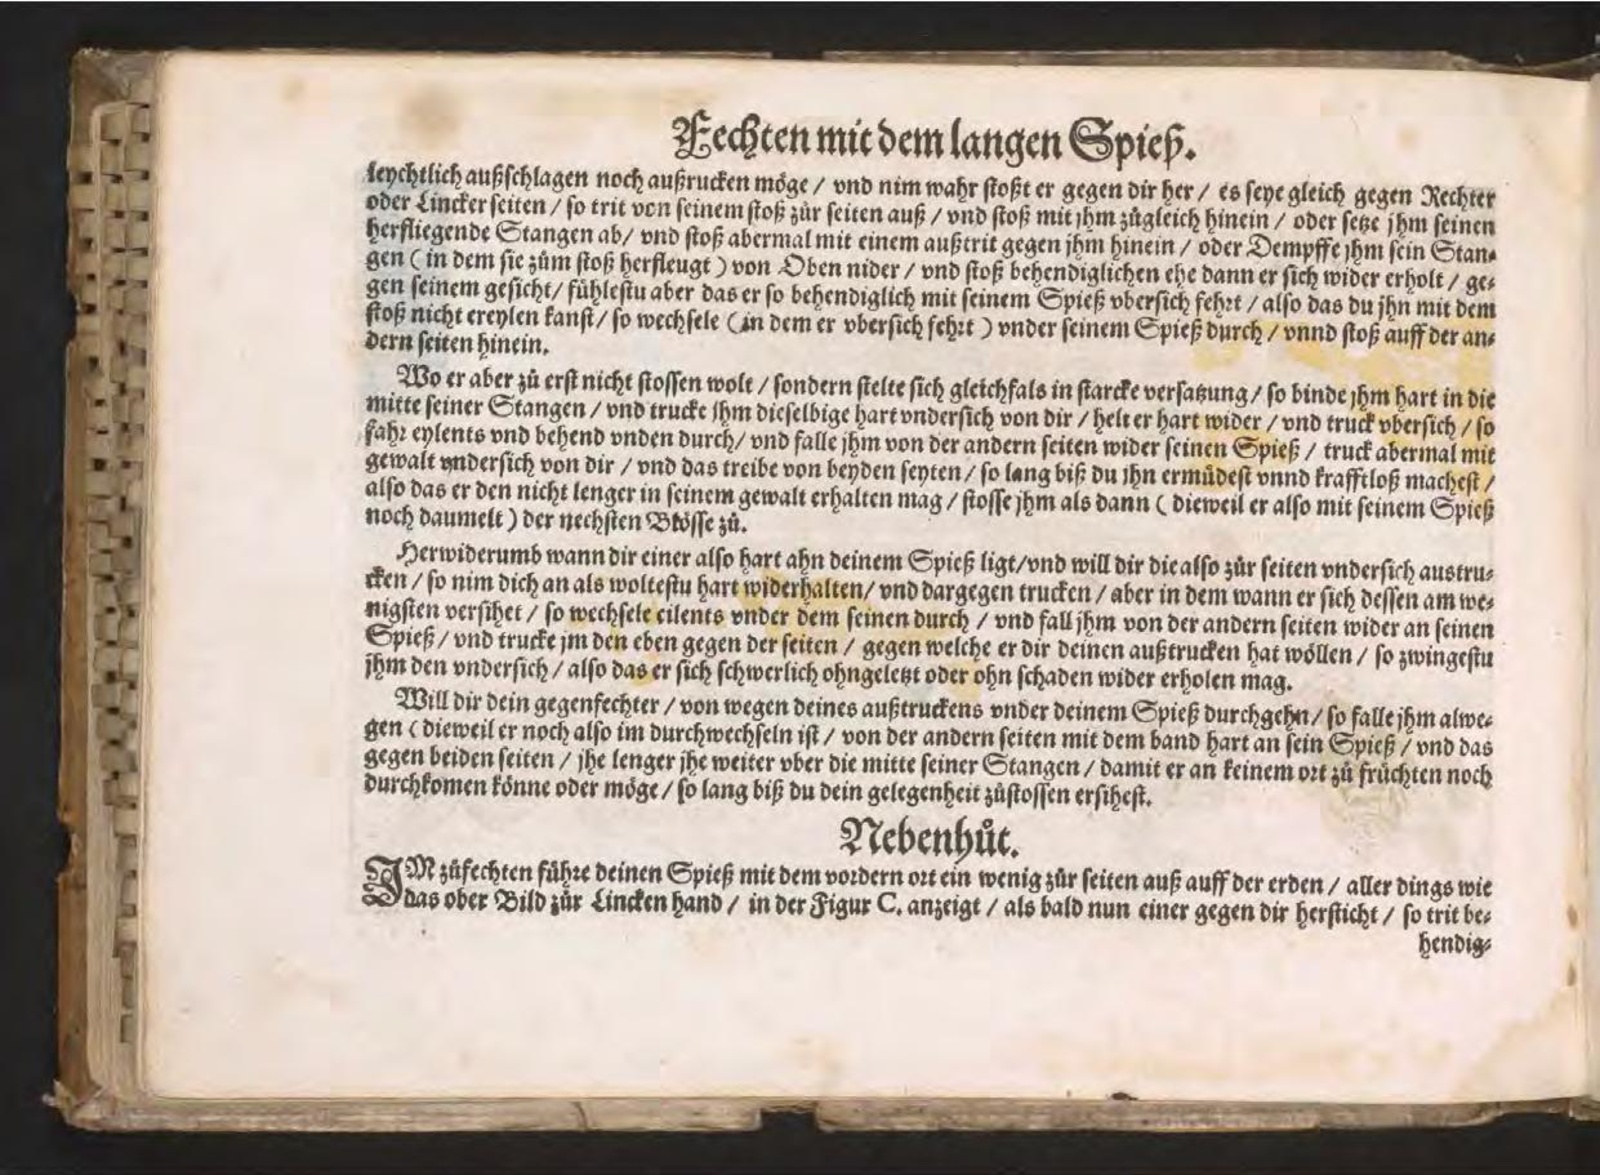 Fechten mit dem langen Spieß.
leychtlich außschlagen noch außrucken möge / vnd nim wahr stoßt er gegen dir her / es seye gleich gegen Rechter
oder Lincker seiten / so trit von seinem stoß zůr seiten auß / vnd stoß mit jhm zůgleich hinein / oder setze jhm seinen
herfliegende Stangen ab / vnd stoß abermal mit einem außtrit gegen jhm hinein / oder Dempffe jhm sein Stan⸗
gen ( in dem sie zům stoß herfleugt ) von Oben nider / vnd stoß behendiglichen ehe dann er sich wider erholt / ge⸗
gen seinem gesicht / fühlestu aber das er so behendiglich mit seinem Spieß vbersich fehrt / also das du jhn mit dem
stoß nicht ereylen kanst / so wechsele ( in dem er vbersich fehrt ) vnder seinem Spieß durch / vnnd stoß auff der an⸗
dern seiten hinein.
Wo er aber zů erst nicht stossen wolt / sondern stelte sich gleichfals in starcke versatzung / so binde jhm hart in die
mitte seiner Stangen / vnd trucke jhm dieselbige hart vndersich von dir / helt er hart wider / vnd truck vbersich / so
fahr eylents vnd behend vnden durch / vnd falle jhm von der andern seiten wider seinen Spieß / truck abermal mit
gewalt vndersich von dir / vnd das treibe von beyden seyten / so lang biß du jhn ermůdest vnnd krafftloß machest /
also das er den nicht lenger in seinem gewalt erhalten mag / stosse jhm als dann ( dieweil er also mit seinem Spieß
noch daumelt ) der nechsten Blösse zů.
Herwiderumb wann dir einer also hart ahn deinem Spieß ligt / vnd will dir die also zůr seiten vndersich austru⸗
cken / so nim dich an als woltestu hart widerhalten / vnd dargegen trucken / aber in dem wann er sich dessen am we⸗
nigsten versihet / so wechsele eilents vnder dem seinen durch / vnd fall jhm von der andern seiten wider an seinen
Spieß / vnd trucke jm den eben gegen der seiten / gegen welche er dir deinen außtrucken hat wöllen / so zwingestu
jhm den vndersich / also das er sich schwerlich ohngeletzt oder ohn schaden wider erholen mag.
Will dir dein gegenfechter / von wegen deines außtruckens vnder deinem Spieß durchgehn / so falle jhm alwe⸗
gen ( dieweil er noch also im durchwechseln ist / von der andern seiten mit dem band hart an sein Spieß / vnd das
gegen beiden seiten / jhe lenger jhe weiter vber die mitte seiner Stangen / damit er an keinem ort zů früchten noch
durchkomen könne oder möge / so lang biß du dein gelegenheit zůstossen ersihest.
Nebenhůt.
IM zůfechten führe deinen Spieß mit dem vordern ort ein wenig zůr seiten auß auff der erden / aller dings wie
das ober Bild zůr Lincken hand / in der Figur C. anzeigt / als bald nun einer gegen dir hersticht / so trit be⸗
hendig⸗